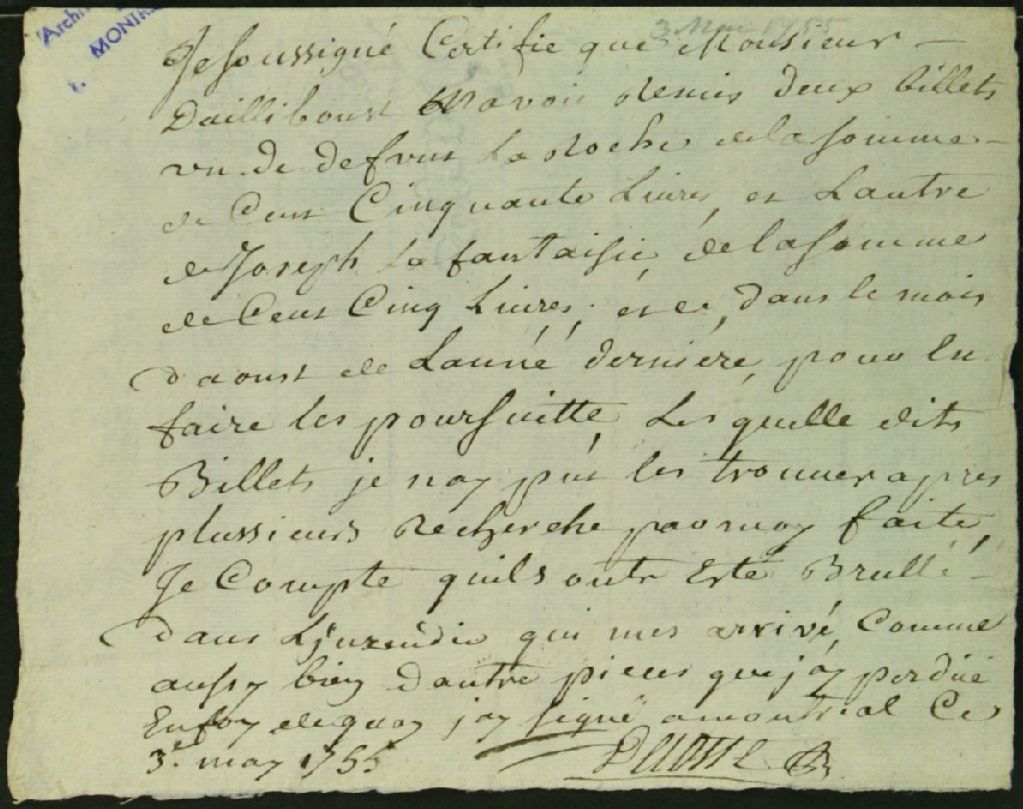 Archi
MONTR
3 Mai 1755
Je soussigné Certifie que Monsieur
Dailliboust Mavoir remis deux billets
vn de defunt La Roche de la somme
de Cent Cinquante Livres, et Lautre
de Joseph La fantaisie, de la somme
de Cent Cinq Livres, et ce, dans le mois
daoust de Lanné derniere, pour En
faire les poursuitte, Les quelle dits
Billets je nay put les trouuer apres
plussieurs Recherche par moy faite,
Je Compte quils onte Esté Brullé
dans Linzendie qui mes arrivé, Comme
aussy bien dautre pieces que jay perdüe
En foy de quoy jay signé a montreal Ce
3e. may 1755